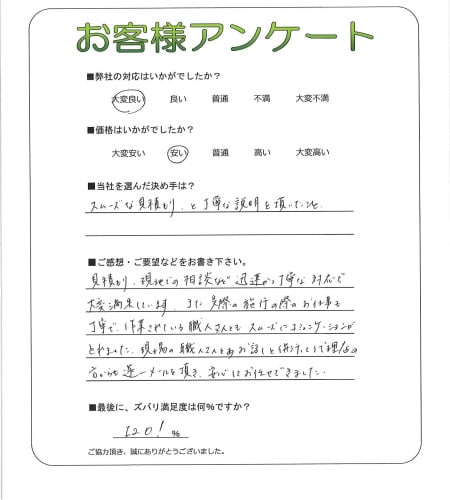 お客様アンケート
■弊社の対応はいかがでしたか？
大変良い 良い 普通 不満 大変不満
■価格はいかがでしたか？
大変安い 安い 普通 高い 大変高い
■当社を選んだ決め手は？
スムーズな見積もり、と丁寧な説明を頂いたこと
■ご感想・ご要望などをお書き下さい。
見積もり、現地での相談など 迅速かつ丁寧な対応で
大変満足しています。また 実際の施行の際のお仕事も
丁寧で、作業されている職人さんとも スムーズにコミュニケーションが
とれました。現場の職人さんとお話しと併行して
方からも逐一メールを頂き、安心してお任せできました。
■最後に、ズバリ満足度は何%ですか？
120! %
ご協力頂き、誠にありがとうございました。